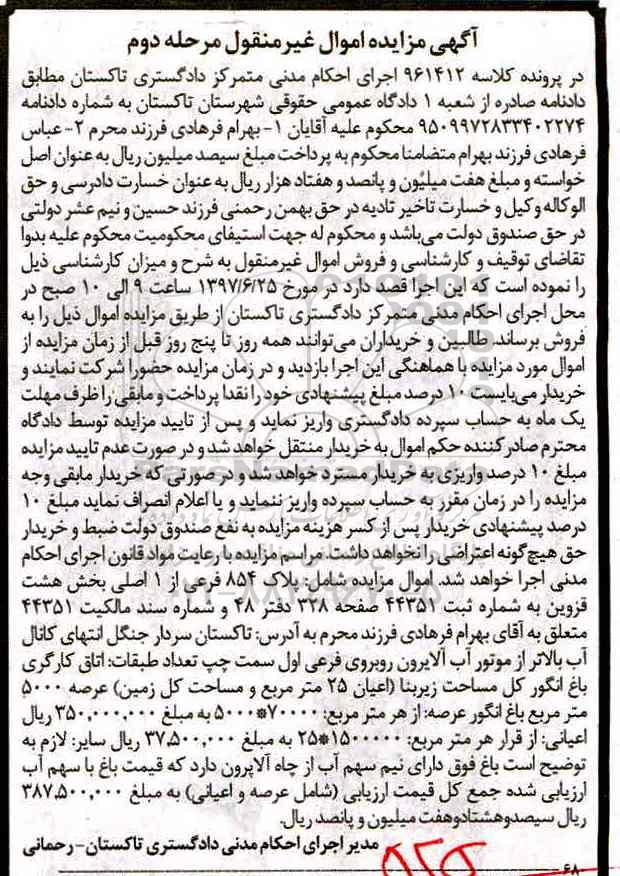 آگهی مزایده اموال غیرمنقول مرحله دوم
در پرونده کلاسه ۹۶۱۴۱۲ اجرای احکام مدنی متمرکز دادگستری تاکستان مطابق
دادنامه صادره از شعبه ۱ دادگاه عمومی حقوقی شهرستان تاکستان به شماره دادنامه
۹۵۰۹۹۷۲۸۳۳۴۰۲۲۷۴ محکوم علیه آقایان ۱- بهرام فرهادی فرزند محرم ۲- عباس
فرهادی فرزند بهرام متضامنا محکوم به پرداخت مبلغ سیصد میلیون ریال به عنوان اصل
خواسته و مبلغ هفت میلیون و پانصد و هفتاد هزار ریال به عنوان خسارت دادرسی و حق
الوکاله وکیل و خسارت تاخیر تادیه در حق بهمن رحمنی فرزند حسین و نیم عشر دولتی
در حق صندوق دولت می‌باشد و محکوم له جهت استیفای محکومیت محکوم علیه بدوا
تقاضای توقیف و کارشناسی و فروش اموال غیرمنقول به شرح و میزان کارشناسی ذیل
را نموده است که این اجرا قصد دارد در مورخ ۱۳۹۷/۶/۲۵ ساعت ۹ الی ۱۰ صبح در
محل اجرای احکام مدنی متمرکز دادگستری تاکستان از طریق مزایده اموال ذیل را به
فروش برساند. طالبین و خریداران می‌توانند همه روز تا پنج روز قبل از زمان مزایده از
اموال مورد مزایده با هماهنگی این اجرا بازدید و در زمان مزایده حضورا شرکت نمایند و
خریدار می‌بایست ۱۰ درصد مبلغ پیشنهادی خود را نقدا پرداخت و مابقی را ظرف مهلت
یک ماه به حساب سپرده دادگستری واریز نماید و پس از تایید مزایده توسط دادگاه
محترم صادرکننده حکم اموال به خریدار منتقل خواهد شد و در صورت عدم تایید مزایده
مبلغ ۱۰ درصد واریزی به خریدار مسترد خواهد شد و در صورتی که خریدار مابقی وجه
مزایده را در زمان مقرر به حساب سپرده واریز ننماید و یا اعلام انصراف نماید مبلغ ۱۰
درصد پیشنهادی خریدار پس از کسر هزینه مزایده به نفع صندوق دولت ضبط و خریدار
حق هیچ‌گونه اعتراضی را نخواهد داشت. مراسم مزایده با رعایت مواد قانون اجرای احکام
مدنی اجرا خواهد شد. اموال مزایده شامل: پلاک ۸۵۴ فرعی از ۱ اصلی بخش هشت
قزوین به شماره ثبت ۴۴۳۵۱ صفحه ۳۲۸ دفتر ۴۸ و شماره سند مالکیت ۴۴۳۵۱
متعلق به آقای بهرام فرهادی فرزند محرم به آدرس: تاکستان سردار جنگل انتهای کانال
آب بالاتر از موتور آب آلاپرون روبروی فرعی اول سمت چپ تعداد طبقات: اتاق کارگری
باغ انگور کل مساحت زیربنا (اعیان ۲۵ متر مربع و مساحت کل زمین) عرصه ۵۰۰۰
متر مربع باغ انگور عرصه: از هر متر مربع: ۷۰۰۰۰*۵۰۰۰ به مبلغ ۳۵۰,۰۰۰,۰۰۰ ریال
اعیانی: از قرار هر متر مربع: ۱۵۰۰۰۰۰*۲۵ به مبلغ ۳۷,۵۰۰,۰۰۰ ریال سایر: لازم به
توضیح است باغ فوق دارای نیم سهم آب از چاه آلاپرون دارد که قیمت باغ با سهم آب
ارزیابی شده جمع کل قیمت ارزیابی (شامل عرصه و اعیانی) به مبلغ ۳۸۷,۵۰۰,۰۰۰
ریال سیصدوهشتادوهفت میلیون و پانصد ریال.
مدیر اجرای احکام مدنی دادگستری تاکستان- رحمانی
۶۸